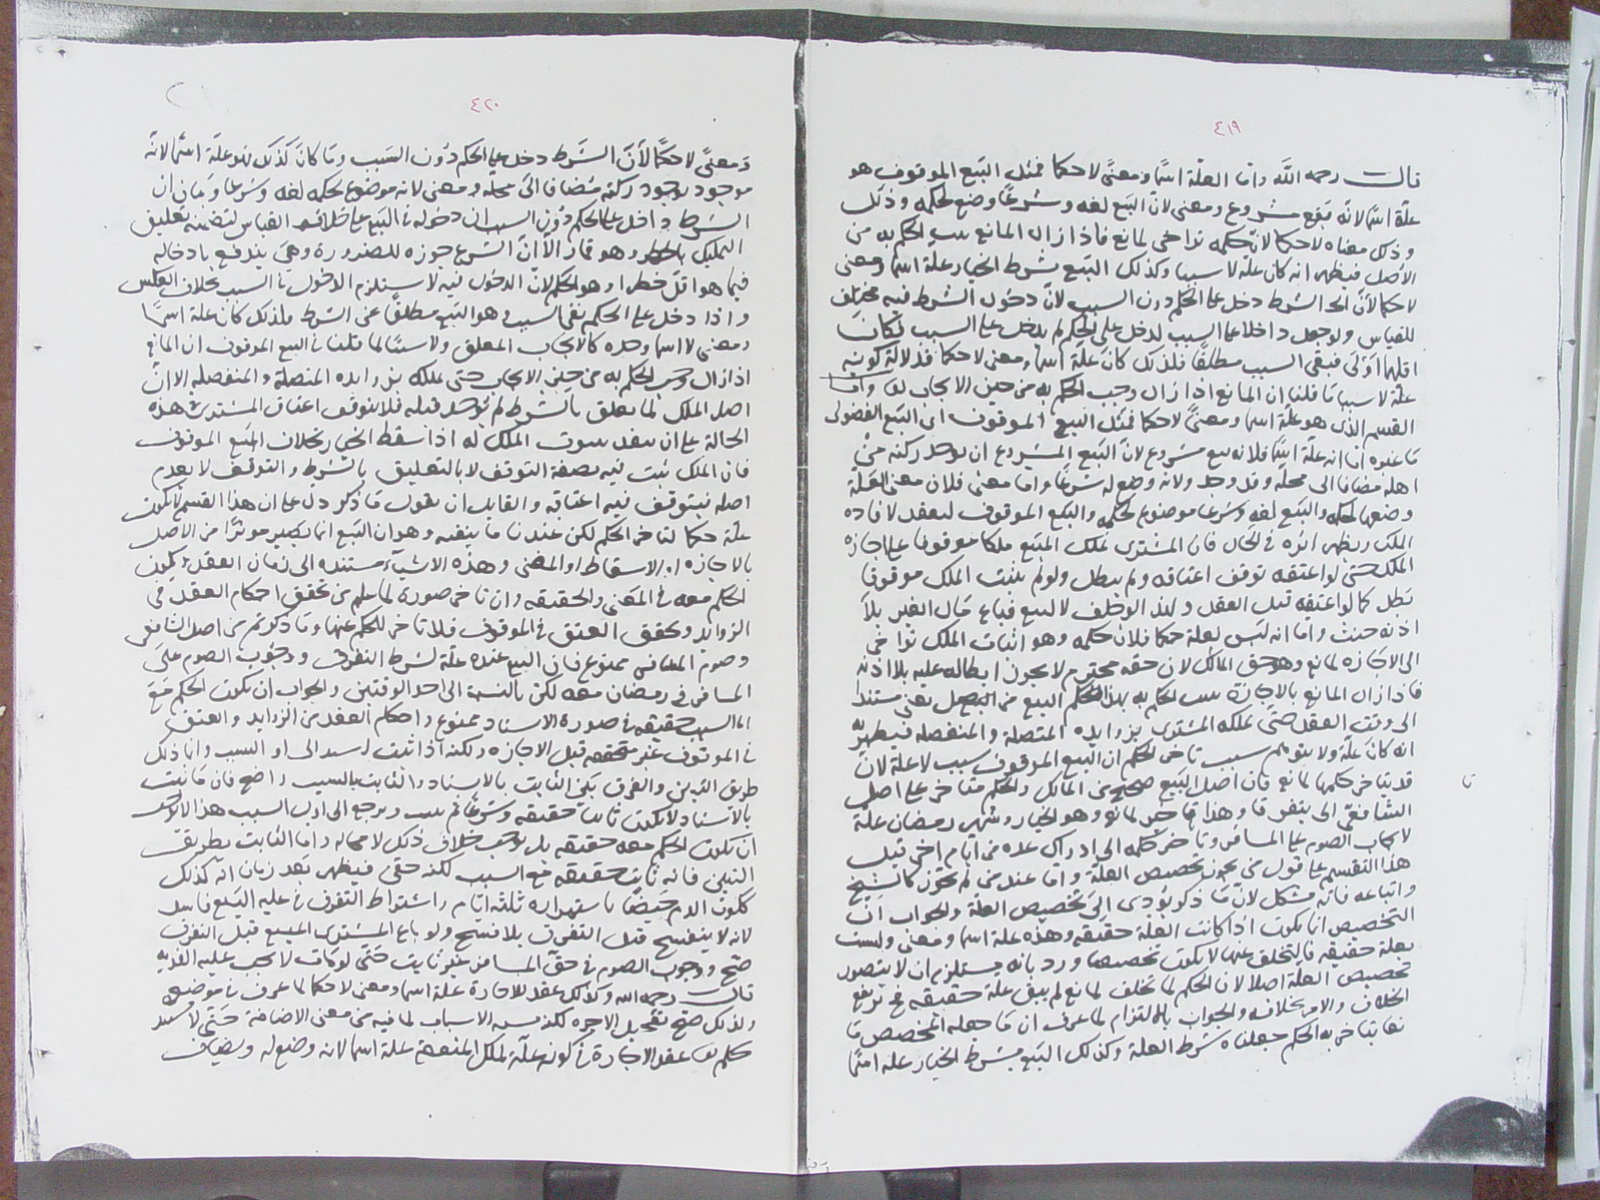 ٤١٩
قال رحمه الله واما العلة اسما ومعنى لا حكما فمثل البيع الموقوف هو
علة اسما لانه بيع مشروع ومعنى لان البيع لغة وشرعا وضع لحكمه وذلك
وذلك معناه لا حكما لان حكمه تراخى لمانع فاذا زال المانع ثبت الحكم به من
الاصل فيظهر انه كان علة لا سببا وكذلك البيع بشرط الخيار علة اسما ومعنى
لا حكما لان الشرط دخل على الحكم دون السبب لان دخول الشرط فيه مخالف
للقياس ولو جعل داخلا على السبب لدخل على الحكم لم يدخل على السبب فكان
اقلهما اولى فبقى السبب مطلقا فلذلك كان علة اسما ومعنى لا حكما فدلالة كونه
علة لا سببا ما قلنا ان المانع اذا زال وجب الحكم به من حين الايجاب واما
القسم الذى هو علة اسما ومعنى لا حكما فمثل البيع الموقوف اى البيع الفضولى
اما انه علة اسما فلانه بيع مشروع لان البيع المشروع ان يوجد ركنه من
اهله مضافا الى محله وقد وجد ولانه وضع له شرعا واما معنى فلان معنى العلة
وضعها لحكمه والبيع لغة وشرعا موضوع لحكمه والبيع الموقوف انعقد لافادة
الملك ويظهر اثره فى الحال فان المشترى يملك المبيع ملكا موقوفا على اجازة
الملك حتى لو اعتقه توقف اعتاقه ولم يبطل ولو لم يثبت الملك موقوفا
بطل كما لو اعتقه قبل العقد ولهذا لو حلف لا يبيع فباع مال الغير بلا
اذنه حنث واما انه ليس بعلة حكما فلان حكمه وهو اثبات الملك تراخى
الى الاجازة لمانع وهو حق المالك لان حقه محترم لا يجوز ابطاله عليه بلا اذنه
فاذا زال المانع بالاجازة ثبت الحكم به البيع من الاصل يعنى مستندا
الى وقت العقد حتى يملكه المشترى بزوايده المتصلة والمنفصلة فيظهر به
انه كان علة ولا يتوهم بسبب تاخر الحكم ان البيع الموقوف سبب لا علة لان
قد يتاخر حكمها لمانع فان اصل البيع صحيح من المالك والحكم متاخر على اصل
الشافعى الى يتفرقا وهذا تاخير لمانع وهو الخيار وشهر رمضان علة
لايجاب الصوم على المسافر وتاخر حكمه الى ادراك عدة من ايام اخر قيل
هذا التقسيم على قول من يجوز تخصيص العلة واما عند من لم يجوز كالشيخ
واتباعه فانه مشكل لان ما ذكر يؤدى الى تخصيص العلة والجواب ان
التخصيص انما يكون اذا كانت العلة حقيقة وهذه علة اسما ومعنى وليست
بعلة حقيقة فالتخلف عنها لا يكون تخصيصا ورد بانه يستلزم ان لا يتصور
تخصيص العلة اصلا لان الحكم لما تخلف لمانع لم يبق علة حقيقة فح يرتفع
الخلاف والامر بخلافه والجواب بالالتزام لما عرف ان ما جعله المخصص
يتاخر به الحكم جعلناه شرط العلة وكذلك البيع بشرط الخيار علة اسما
٤٢٠
ومعنى لا حكما لان الشرط دخل على الحكم دون السبب وما كان كذلك فهو علة اسما لانه
موجود لوجود ركنه مضافا الى محله ومعنى لانه موضوع لحكمه لغة وشرعا وبيان ان
الشرط داخل على الحكم دون السبب ان دخوله فى البيع على خلاف القياس لتضمنه تعليق
التمليك بالخطر وهو قمار الا ان الشرع جوزه للضرورة وهى يندفع بادخاله
فيما هو اقل خطرا وهو الحكم لان الدخول فيه لا يستلزم الدخول فى السبب بخلاف العكس
واذا دخل على الحكم بقى السبب وهو البيع مطلقا عن الشرط فلذلك كان علة اسما
ومعنى لا اسما وحده كالايجاب المعلق ولا سببا لما قلنا فى البيع الموقوف ان المانع
اذا زال وجب الحكم به من حين الايجاب حتى يملكه بزوايده المتصلة والمنفصلة الا ان
اصل الملك لما تعلق بالشرط لم يوجد قبله فلا يتوقف اعتاق المشترى فى هذه
الحالة على ان ينفذ بثبوت الملك له اذا سقط الخيار بخلاف البيع الموقوف
فان الملك يثبت فيه بصفة التوقف لا بالتعليق بالشرط والتوقف لا يعدم
اصله فيتوقف فيه اعتاقه ولقايل ان يقول ما ذكر دل على ان هذا القسم لا يكون
علة حكما لتاخر الحكم لكن عندنا ما ينفيه وهو ان البيع انما يصير موثرا من الاصل
بالاجازة او الاسقاط او المضى وهذه الاشياء مستندة الى زمان العقد فيكون
الحكم معه فى المعنى والحقيقة وان تاخر صورة لما علم من تحقق احكام العقد فى
الزوايد وتحقق العتق فى الموقوف فلا تاخر للحكم عنها وما ذكرتم من اصل الشافعى
وصوم المسافر ممنوع فان البيع عنده علة بشرط التفرق ووجوب الصوم على
المسافر فى رمضان معه لكن بالنسبة الى احد الوقتين والجواب ان يكون الحكم مع
السبب حقيقة فى صورة الاستناد ممنوع واحكام العقد من الزوايد والعتق
فى الموقوف غير متحققة قبل الاجازة ولكنه اذا ثبت استند الى اول السبب وانما ذلك
طريق التبين والفرق بين الثابت بالاستناد والثابت بالسبب واضح فان ما ثبت
بالاستناد لا يكون ثابتا حقيقة وشرعا ثم يثبت ويرجع الى اول السبب هذا لا يوجب
ان يكون الحكم معه حقيقة بل يوجب خلاف ذلك لا محالة واما الثابت بطريق
التبين فانه ثابت حقيقة مع السبب لكنه خفى فيظهر بعد زمان انه كذلك
ككون الدم حيضا باستمراره ثلثة ايام واشتراط التفرق فى علية البيع فاسد
لانه لا ينفسخ قبل التفرق بلا فسخ ولو باع المشترى المبيع قبل التفرق
صح ووجوب الصوم فى حق المسافر غير ثابت حتى لو مات لا يجب عليه الفدية
قال رحمه الله وكذلك عقد الاجارة علة اسما ومعنى لا حكما لما عرف فى موضعه
ولذلك صح تعجيل الاجرة لكنه يشبه الاسباب لما فيه من معنى الاضافة حتى لا يستند
حكمه عقد الاجارة فى كونه علة لملك المنفعة علة اسما لانه وضع له ويضاف